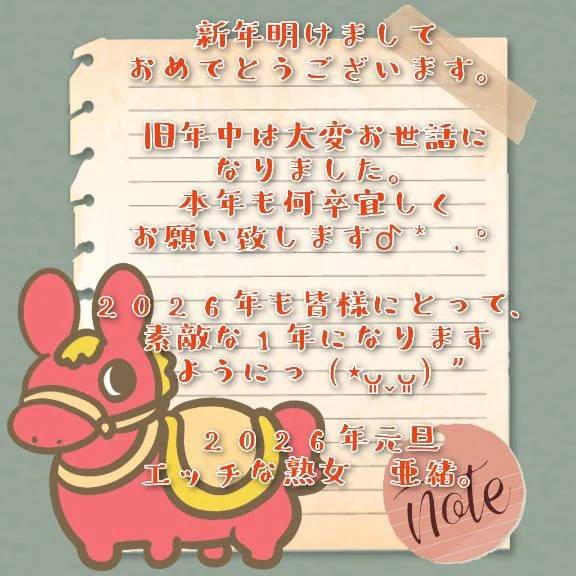 新年明けまして
おめでとうございます。
旧年中は大変お世話に
なりました。
本年も何卒宜しく
お願い致します♪*.°
2026年も皆様にとって、
素敵な1年になります
ようにっ(⋆ᴗ͈ˬᴗ͈)”
2026年元旦
エッチな熟女 亜緒。
note